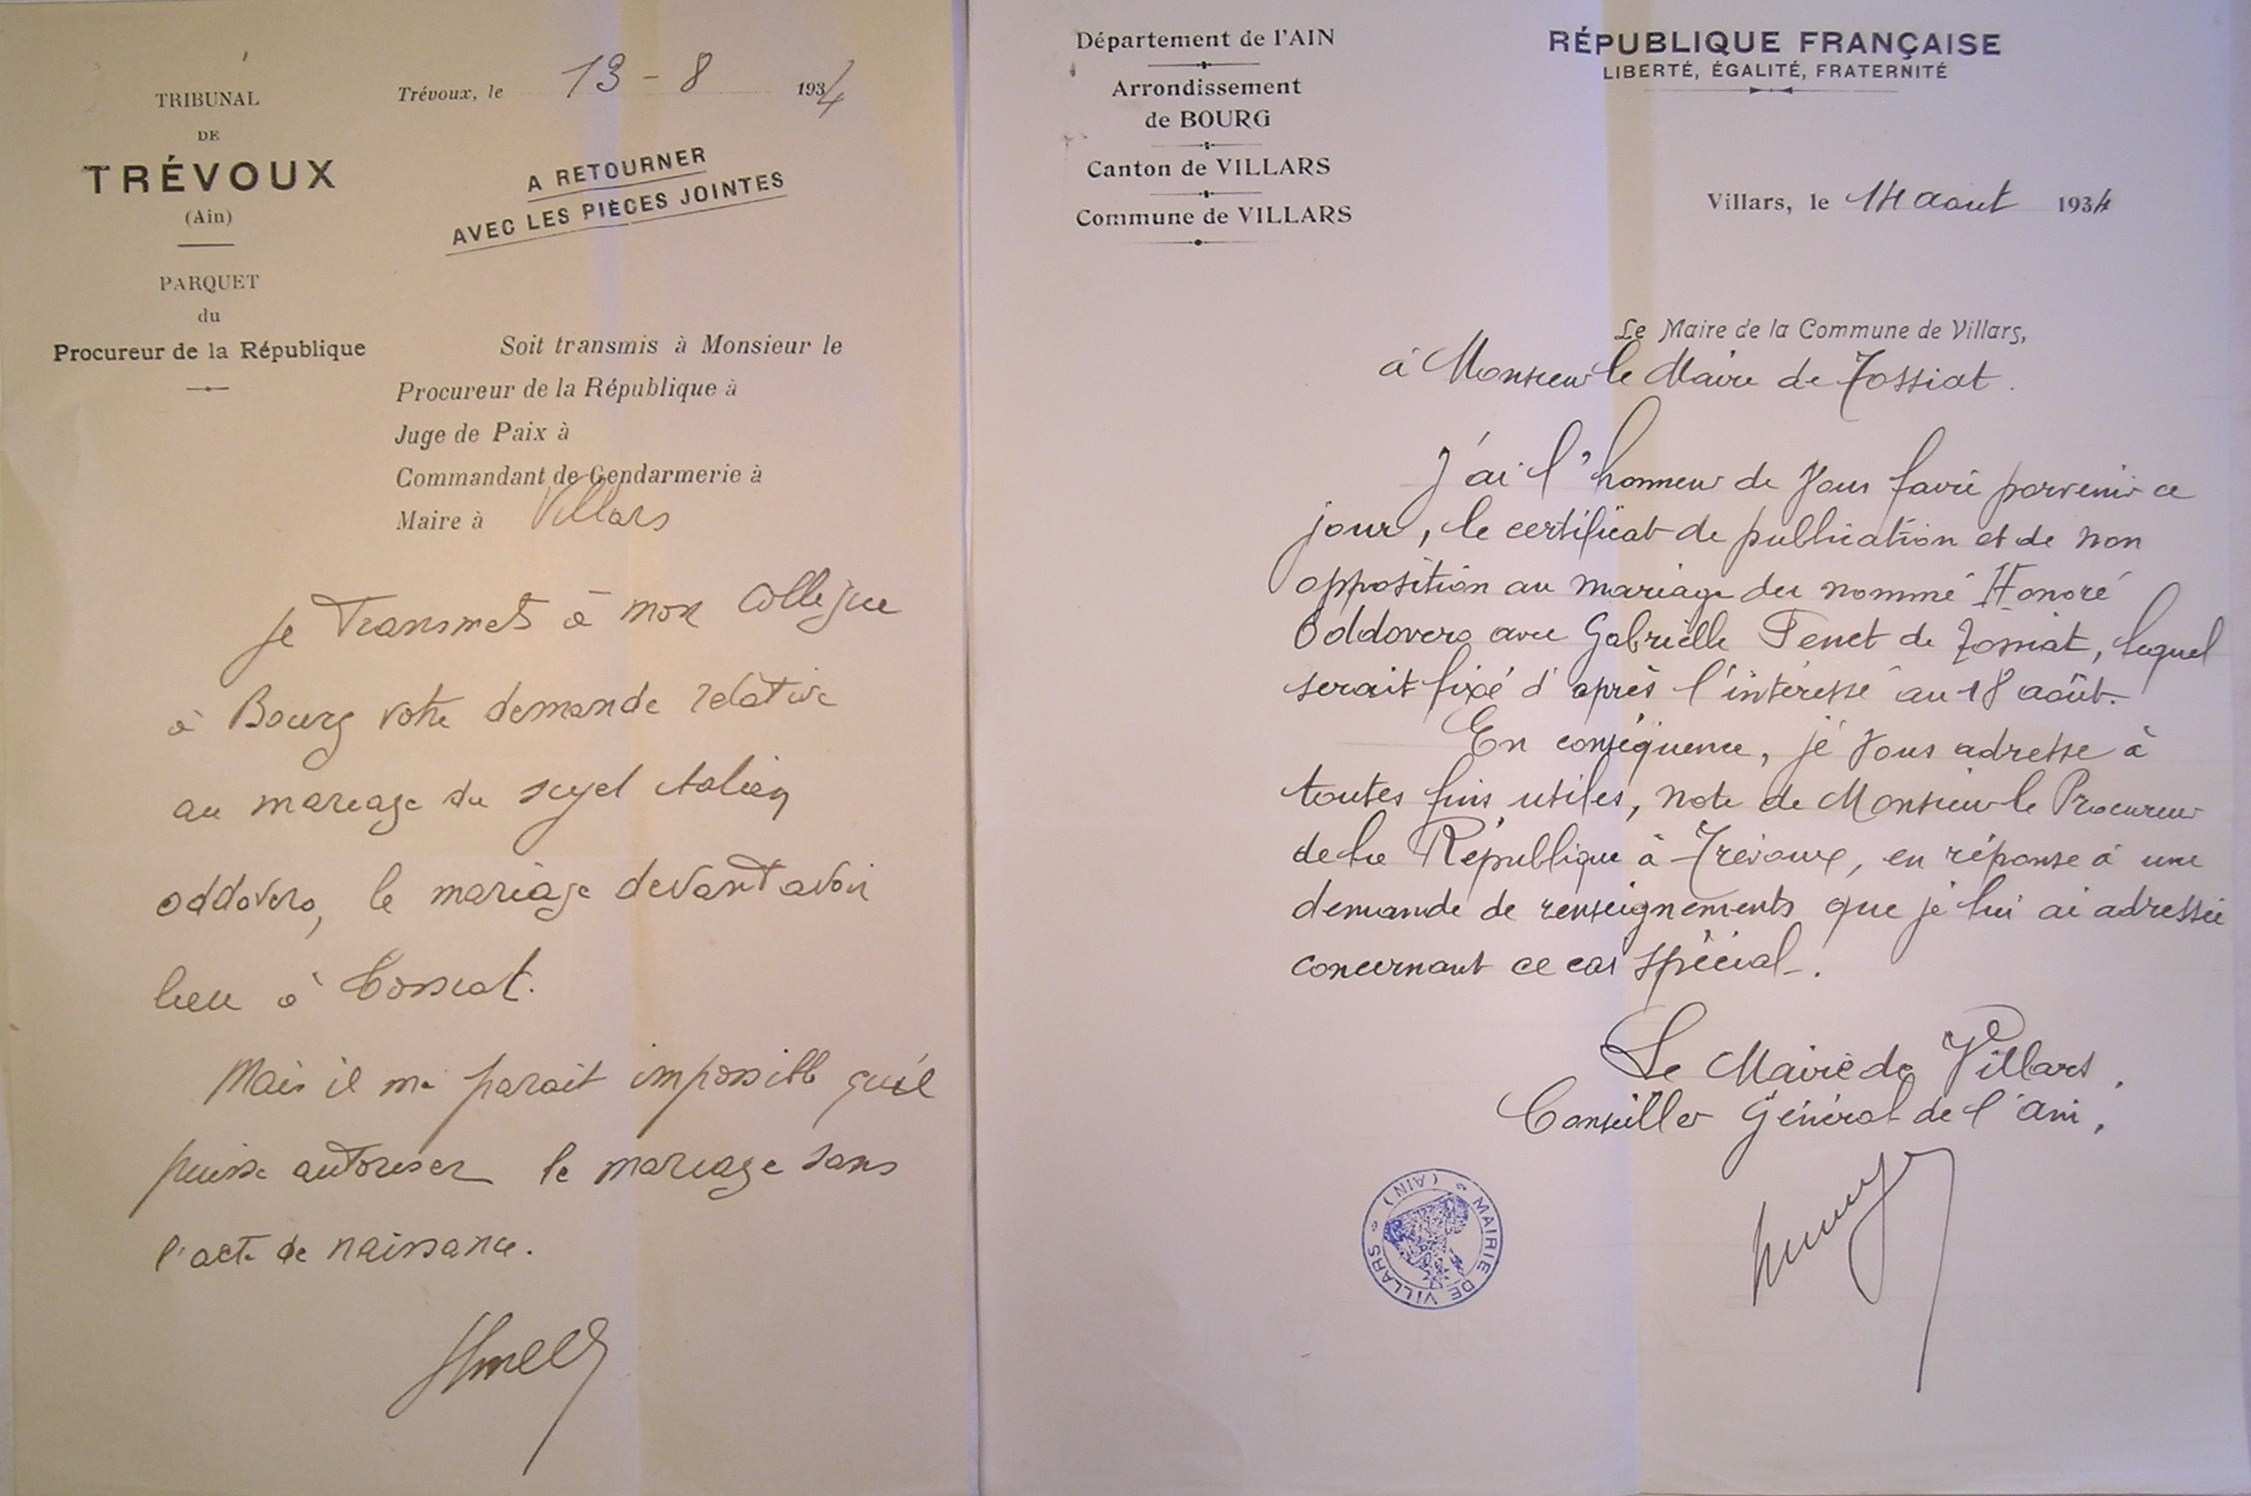 TRIBUNAL
DE
TRÉVOUX
(Ain)
PARQUET
du
Procureur de la République
Trévoux, le 13 - 8 1934
A RETOURNER
AVEC LES PIÈCES JOINTES
Soit transmis à Monsieur le
Procureur de la République à
Juge de Paix à
Commandant de Gendarmerie à
Maire à Villars
Je transmets à mon collègue
à Bourg votre demande relative
au mariage du sujet italien
Oddovero, le mariage devant avoir
lieu à Tossiat.
Mais il me parait impossible qu'il
puisse autoriser le mariage sans
l'acte de naissance.
Département de l'AIN
Arrondissement
de BOURG
Canton de VILLARS
Commune de VILLARS
RÉPUBLIQUE FRANÇAISE
LIBERTÉ, ÉGALITÉ, FRATERNITÉ
Villars, le 14 aout 1934
Le Maire de la Commune de Villars,
à Monsieur le Maire de Tossiat.
J'ai l'honneur de vous faire parvenir ce
jour, le certificat de publication et de non
opposition au mariage du nommé Honoré
Oddovero avec Gabrielle Tenet de Tossiat, lequel
serait fixé d'après l'intéressé au 18 août.
En conséquence, je vous adresse à
toutes fins utiles, note de Monsieur le Procureur
de la République à Trévoux, en réponse à une
demande de renseignements que je lui ai adressée
concernant ce cas spécial.
Le Maire de Villars,
Conseiller Général de l'Ain,
MAIRIE DE VILLARS (AIN)